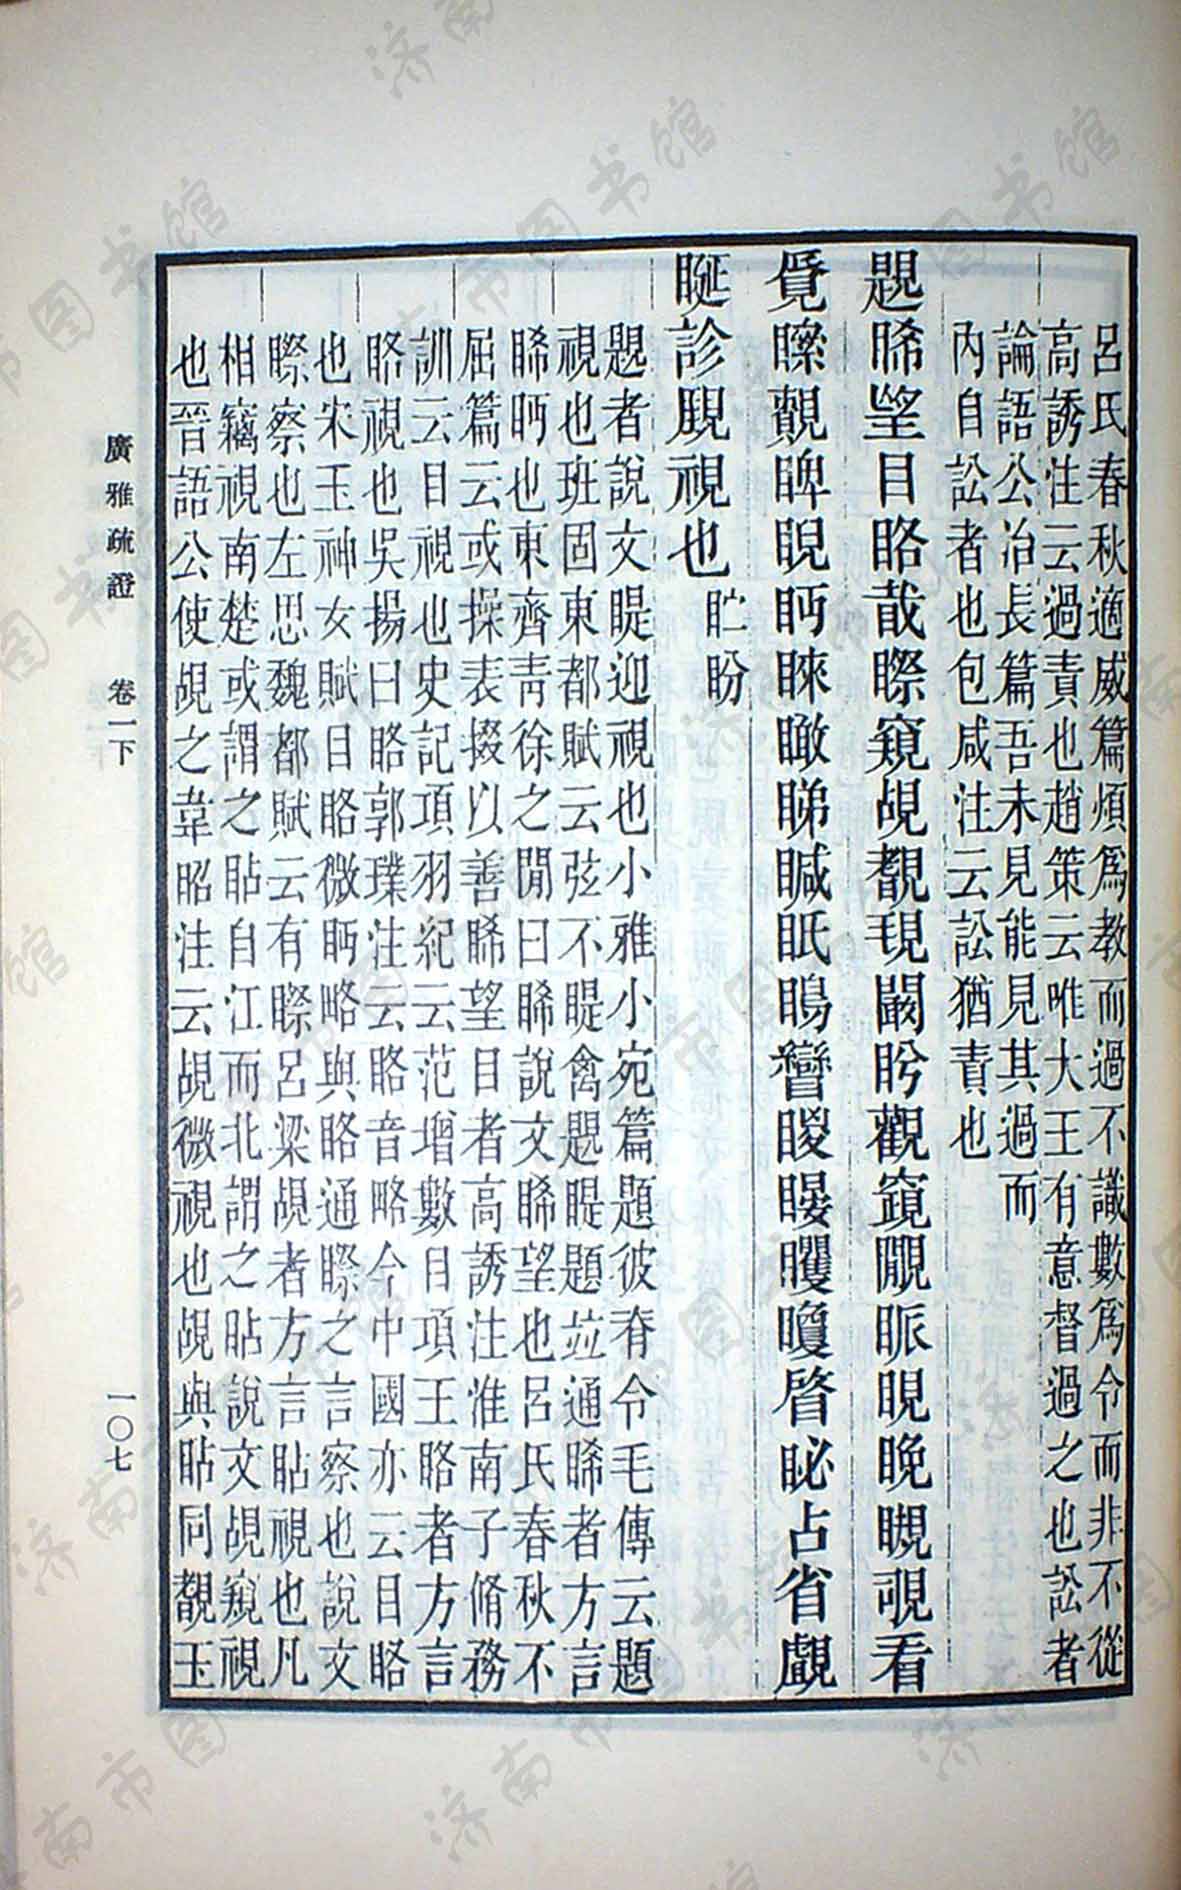 呂氏春秋適威篇煩爲教而過不識數爲令而非不從
高誘注云過責也趙策云唯大王有意督過之也訟者
論語公冶長篇吾未見能見其過而
內自訟者也包咸注云訟猶責也
題睎朢目略㦳瞭窺覘覩覒闞盻觀窺覸眽睍晚瞡覗看
覓矇覿睥睨眄睞瞰睇瞷眂䁍矕㬊䁙矍瞏睯䀣占省覰
䀽診覞視也眝盼
題者說文睼迎視也小雅小宛篇題彼脊令毛傳云題
視也班固東都賦云弦不睼禽題睼題竝通睎者方言
睎眄也東齊靑徐之閒曰睎說文睎望也呂氏春秋不
屈篇云或操表掇以善睎望目者高誘注淮南子脩務
訓云目視也史記項羽紀云范增數目項王䀩者方言
䀩視也吳揚曰䀩郭璞注云䀩音略今中國亦云目䀩
也宋玉神女賦目䀩微眄略與䀩通瞭之言察也說文
瞭察也左思魏都賦云有瞭呂梁覘者方言䀡視也凡
相竊視南楚或謂之䀡自江而北謂之䀡說文覘窺視
也晉語公使覘之韋昭注云覘微視也覘與䀡同覩玉
廣雅疏證　卷一下
一〇七
济南市图书馆